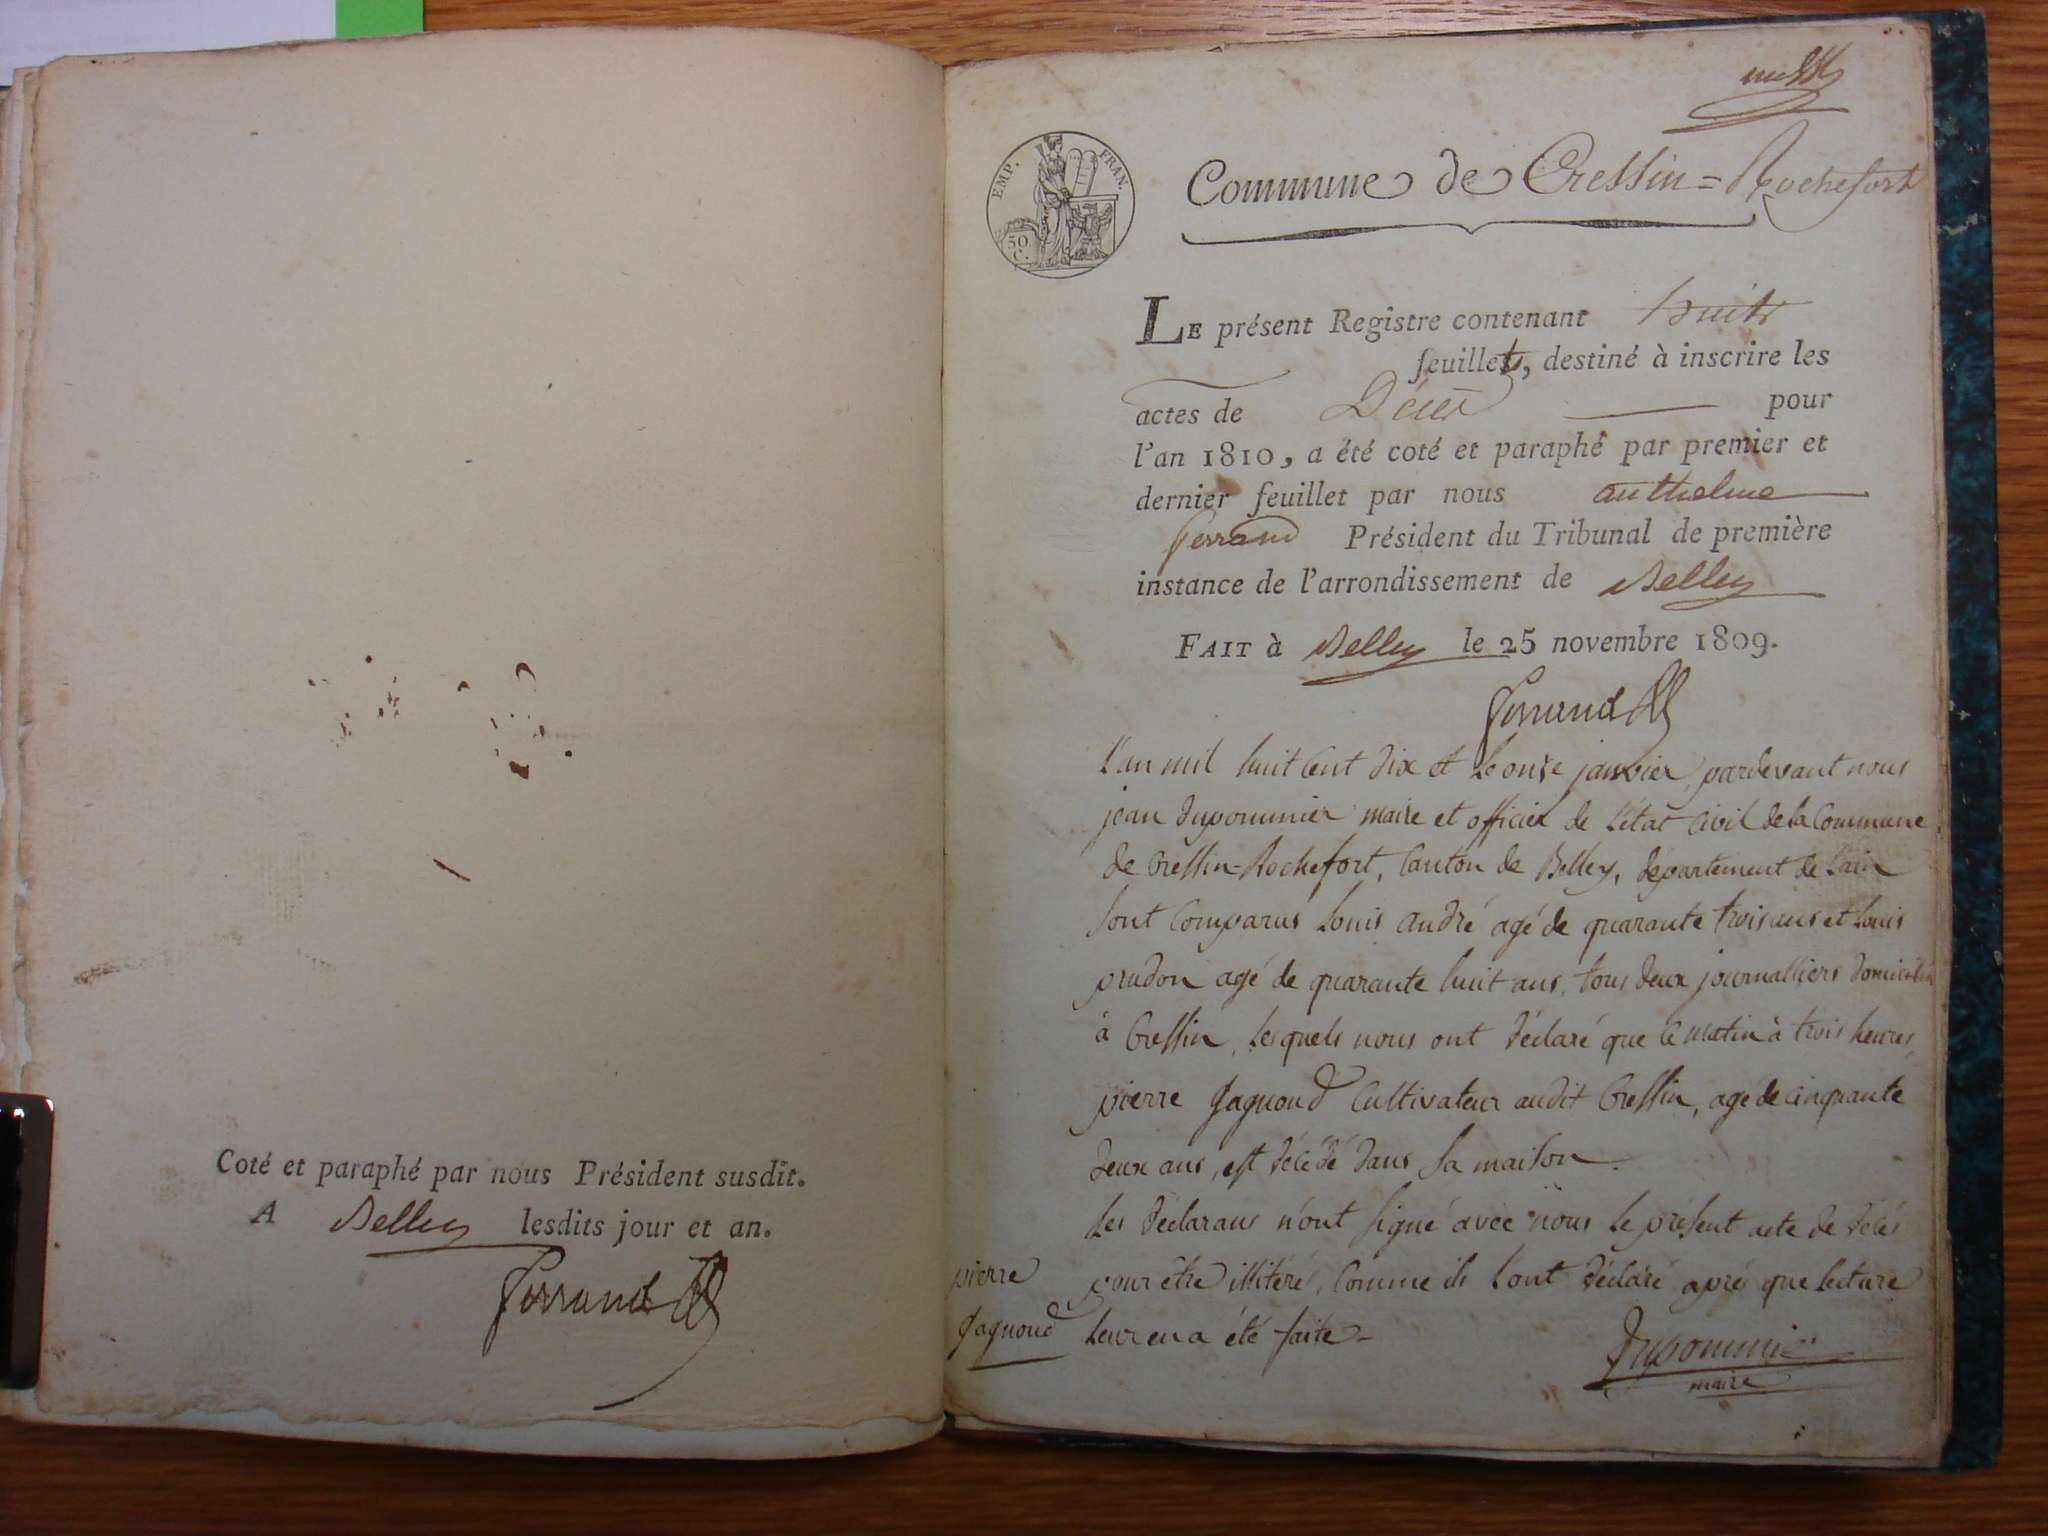 Coté et paraphé par nous Président susdit.
A Belley lesdits jour et an.
Ferrand
EMP. FRAN.
50 C.
Commune de Cressin=Rochefort
LE présent Registre contenant huit
feuillets, destiné à inscrire les
actes de Décès pour
l'an 1810, a été coté et paraphé par premier et
dernier feuillet par nous anthelme
ferrand Président du Tribunal de première
instance de l'arrondissement de Belley
FAIT à Belley le 25 novembre 1809.
Ferrand
L'an mil huit Cent dix et Le onze janvier, pardevant nous
jean Dupommier maire et officier de L'état Civil de la Commune
de Cressin-Rochefort, Canton de Belley, département de L'ain
sont Comparus Louis andré agé de quarante trois ans et Louis
prudon agé de quarante huit ans, tous deux journalliers domiciliés
à Cressin, Lesquels nous ont déclaré que Ce matin à trois heures,
pierre Gagnoud Cultivateur audit Cressin, agé de cinquante
deux ans, est décédé dans sa maison.
Les déclarans n'ont signé avec nous le présent acte de décés
pour être illitéré, Comme ils l'ont déclaré aprés que lecture
leur en a été faite.
pierre
Gagnoud
Dupommier
maire